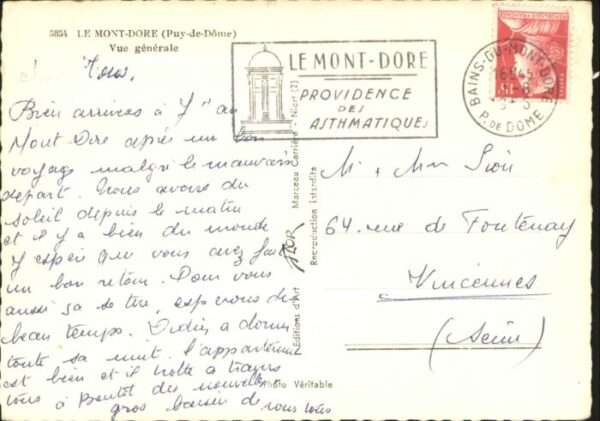 5854 LE MONT-DORE (Puy-de-Dôme)
Vue générale
Tous,
Bien arrivés à
Mont Dore après un bon
voyage malgré le mauvais
départ. Nous avons du
soleil depuis le matin
et il y a bien du monde
J'espère que vous avez fait
un bon retour. Pour vous
aussi sa se tire, espérons du
beau temps. Didier a dormi
toute sa nuit. L'appartement
est bien et il
tous à Bientôt des nouvelles
gros baiser de nous tous
LE MONT-DORE
PROVIDENCE
DES
ASTHMATIQUES
BAINS-DU-MONT-DORE
P. DE DOME
Editions d'Art Marceau Carrière - Niort
Reproduction interdite
Photo Véritable
M. + Mme
64 rue de Fontenay
Vincennes
(Seine)